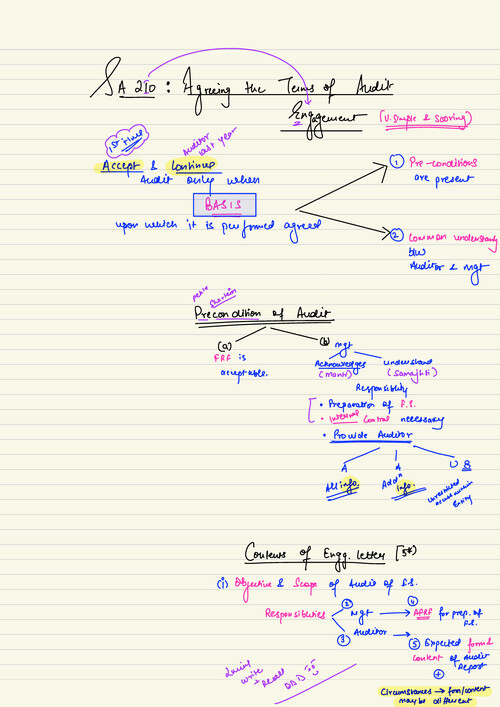 SA 210 : Agreeing the Terms of Audit
Engagement
(V. Simple & Scoring)
1st time
Auditor last year
Accept & Continue
Audit only when
BASIS
upon which it is performed agreed
① Pre-conditions
are present
② Common understandg
b/w
Auditor & mgt
pehle
Precondition of Audit
(a)
FRF is
acceptable.
(b) mgt
Acknowledges
(manti)
understand
(samajhti)
Responsibility
• Preparation of F.S.
• Internal Control necessary
• Provide Auditor
A
A
U B
All info.
Addn info.
Unrestricted
access within
Entity
Contents of Engg. letter [5*)
(i) Objective & Scope of Audit of F.S.
Responsibilities
② Mgt
④
AFRF for prep. of
F.S.
③ Auditor
⑤ Expected form &
content of Audit
Report
+
Circumstances → form/content
may be different
write
+ Recall